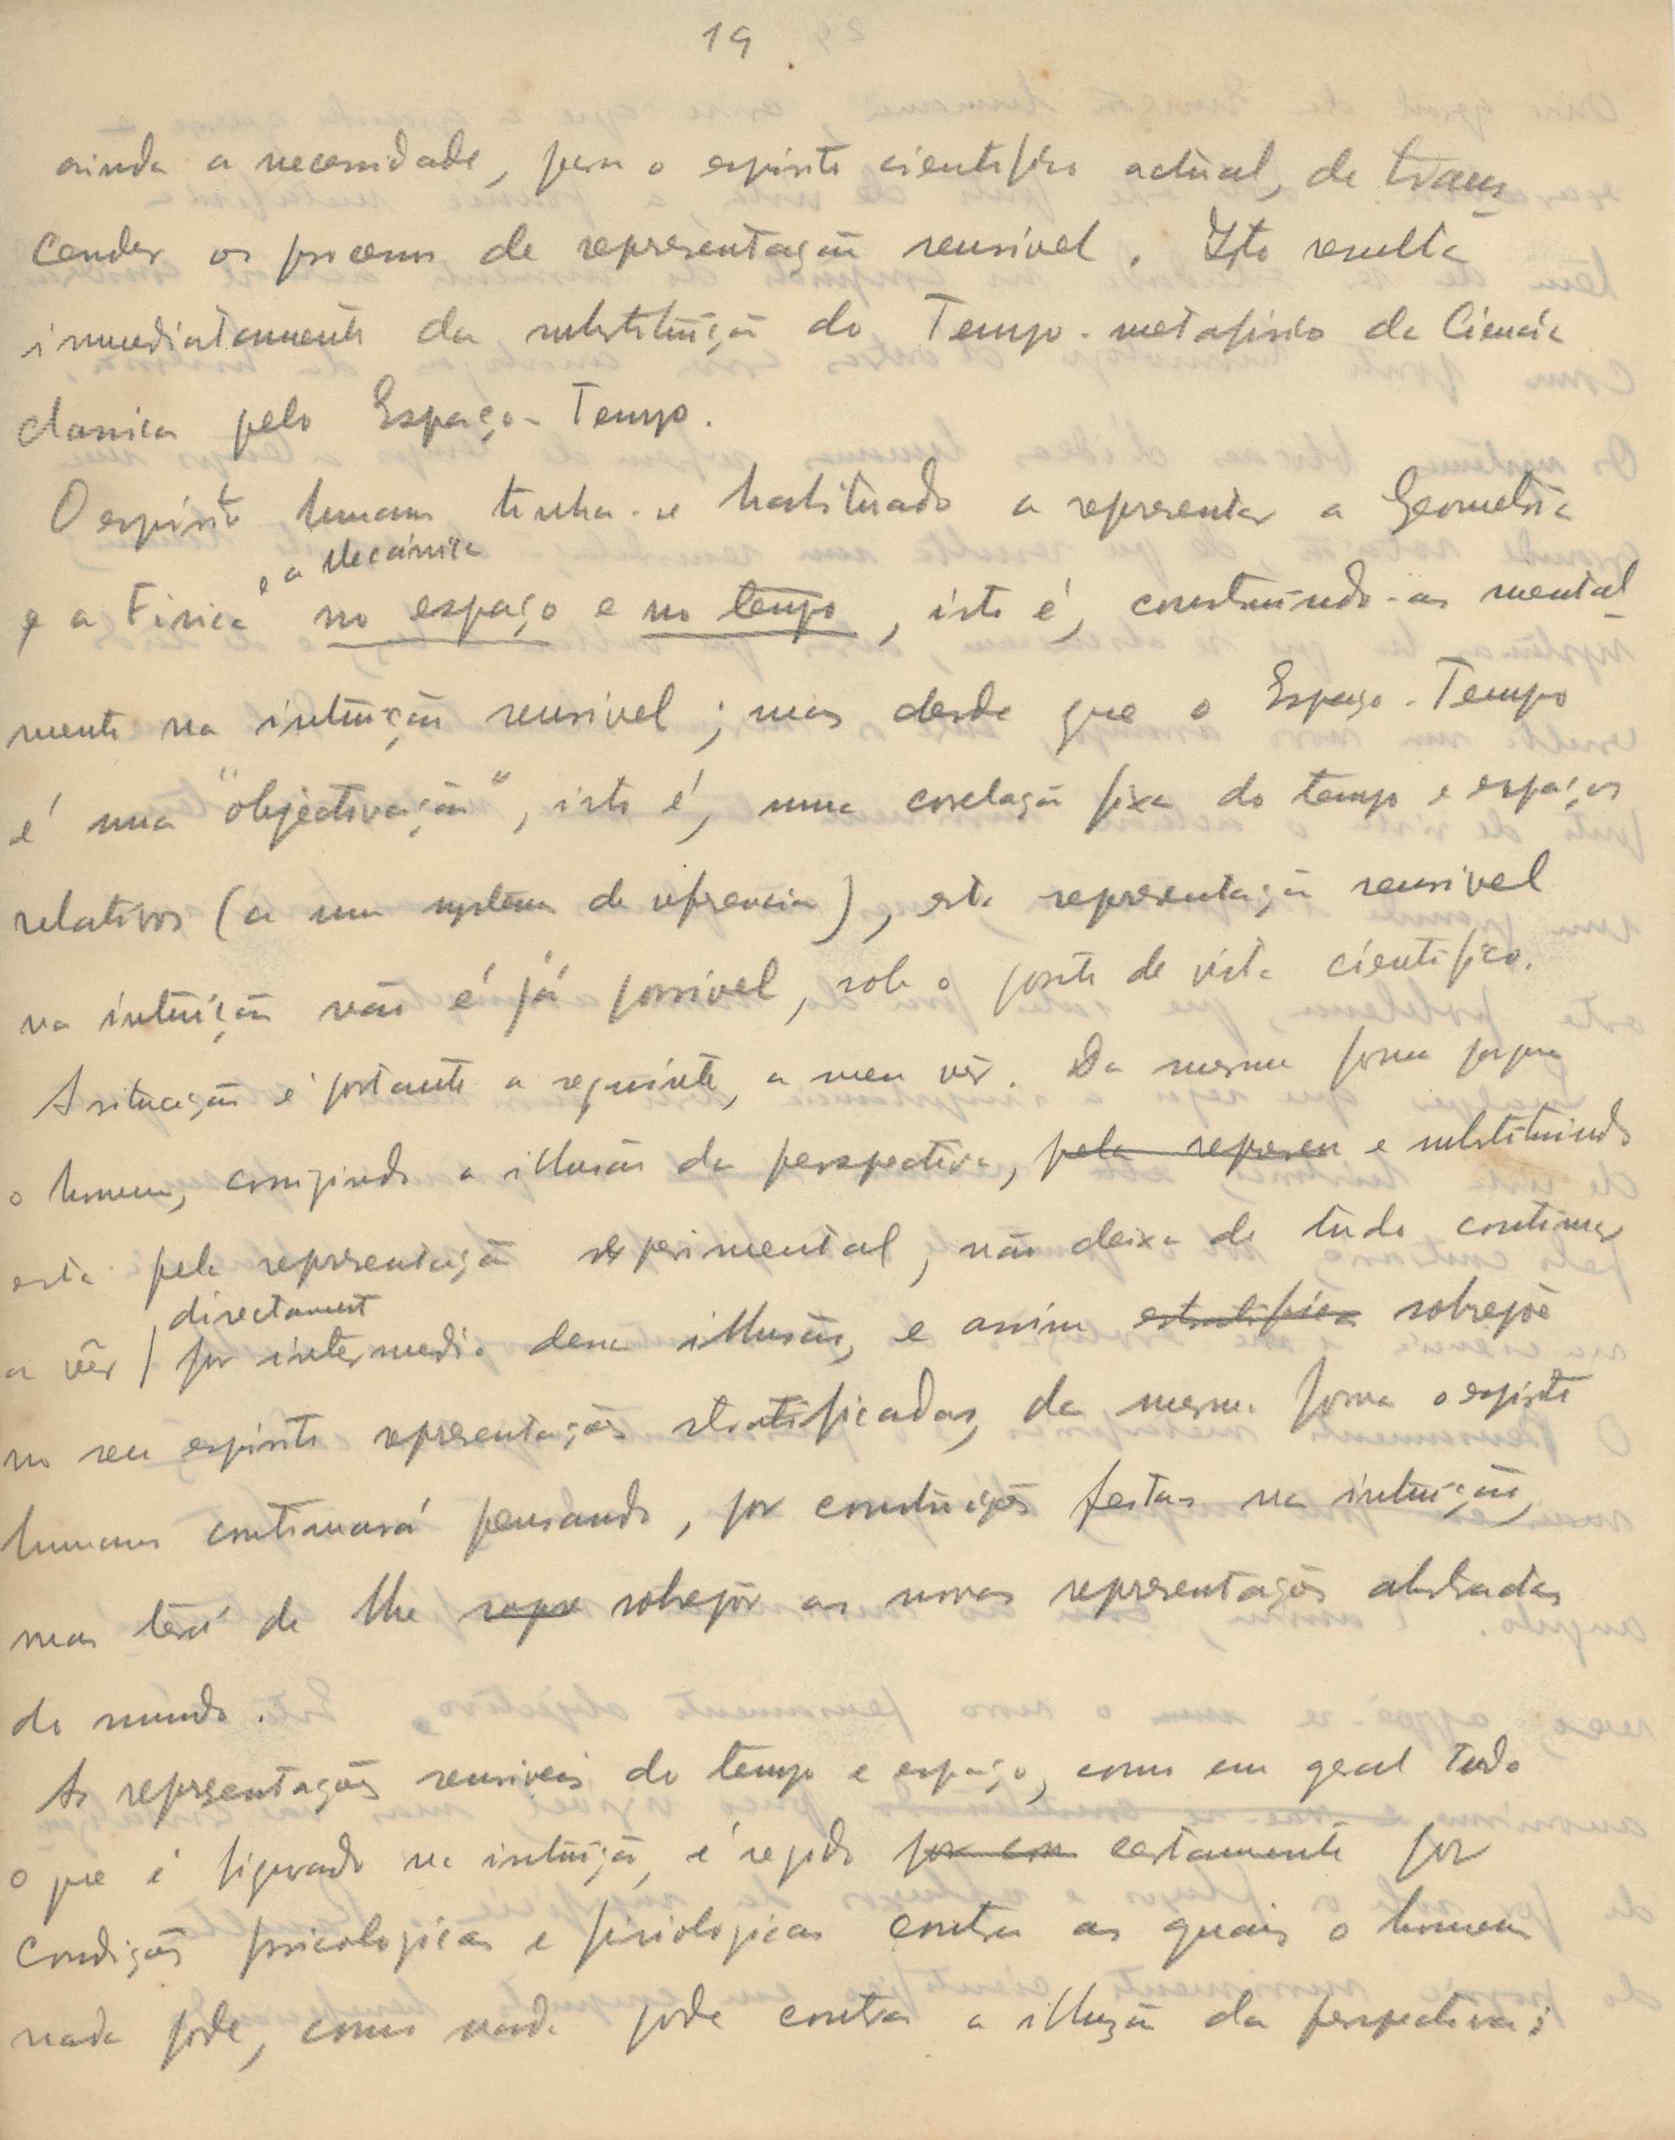 19
ainda a necessidade, para o espirito cientifico actual, de trans
cender os processos de representação sensivel. Isto resulta
immediatamente da substituição do Tempo-metafisico da Ciencia
classica pelo Espaço-Tempo.
O espirito humano tinha-se habituado a representar a Geometria
, a Mecánica
e a Fisica no espaço e no tempo, isto é, construindo-as mental_
mente na intuição sensivel; mas desde que o Espaço-Tempo
é uma "objectivação", isto é, uma correlação fixa do tempo e espaços
relativos (a um systema de referencia), esta representação sensivel
na intuição não é já possivel, sob o ponto de vista cientifico.
A situação é portanto a seguinte, a meu vêr. Da mesma forma porque
o homem, corrigindo a illusão da perspectiva, pela represen e substituindo
esta pela representação experimental, não deixa de tudo continuar
directament
a vêr por intermedio dessa illusão, e assim estratifica sobrepõe
no seu espirito representações stratificadas, da mesma forma o espirito
humano continuará pensando, por construções feitas na intuição,
mas terá de lhe sopre sobrepôr as novas representações abstractas
do mundo.
As representações sensiveis do tempo e espaço, como em geral tudo
o que é figurado na intuição, é regido por con certamente por
condições psicologicas e fisiologicas contra as quais o homem
nada póde, como nada pode contra a illusão da perspectiva;